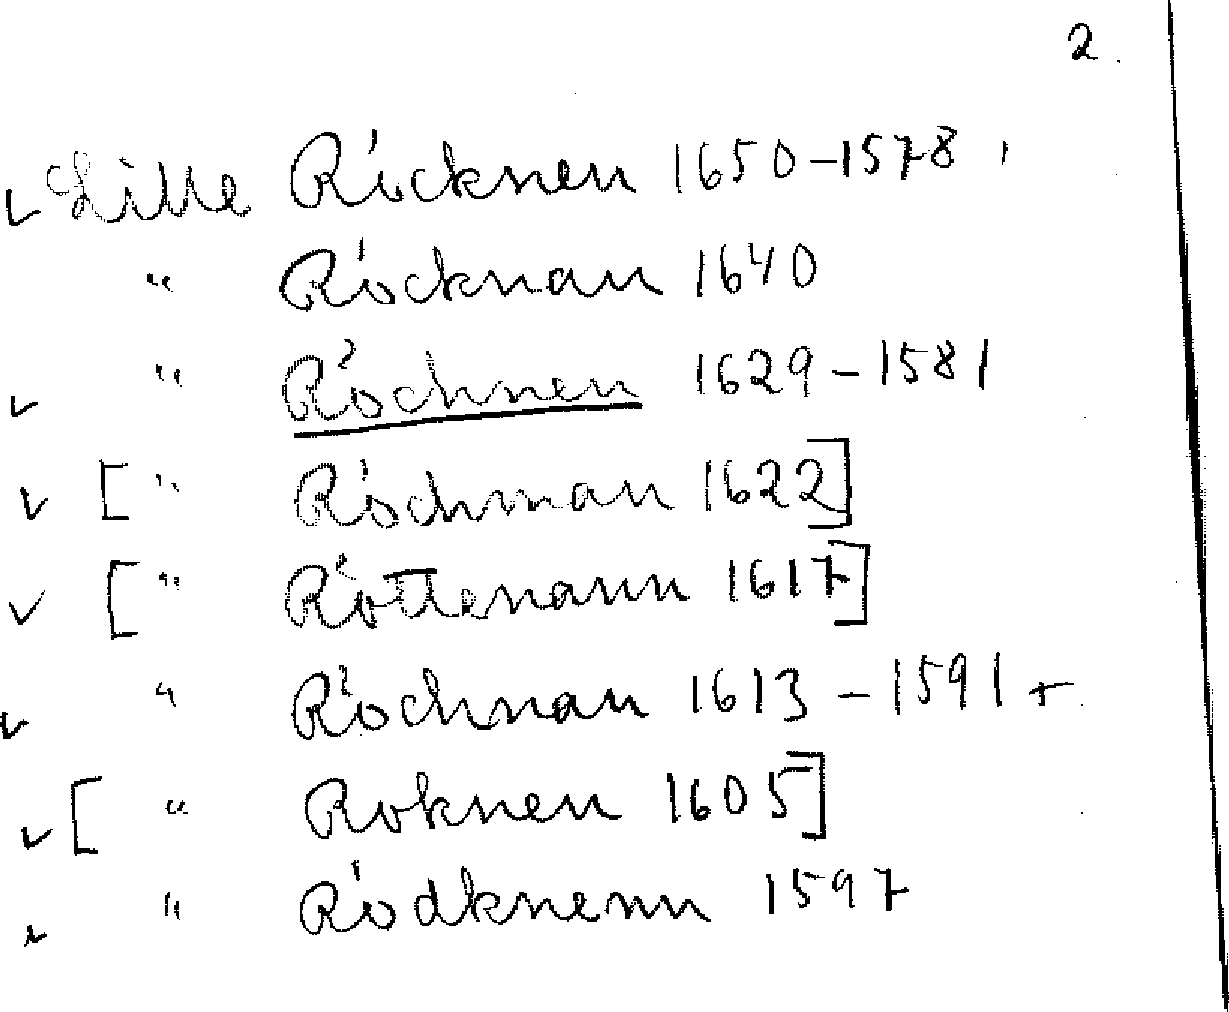 2.
✓ Lille Röcknen 1650-1578
" Röcknan 1640
✓ " Röchnen 1629-1581
✓ [ " Röchman 1622]
✓ [ " Röttenann 1617]
✓ " Röchnan 1613-1591 +
✓ [ " Roknen 1605]
✓ " Rödknenn 1597